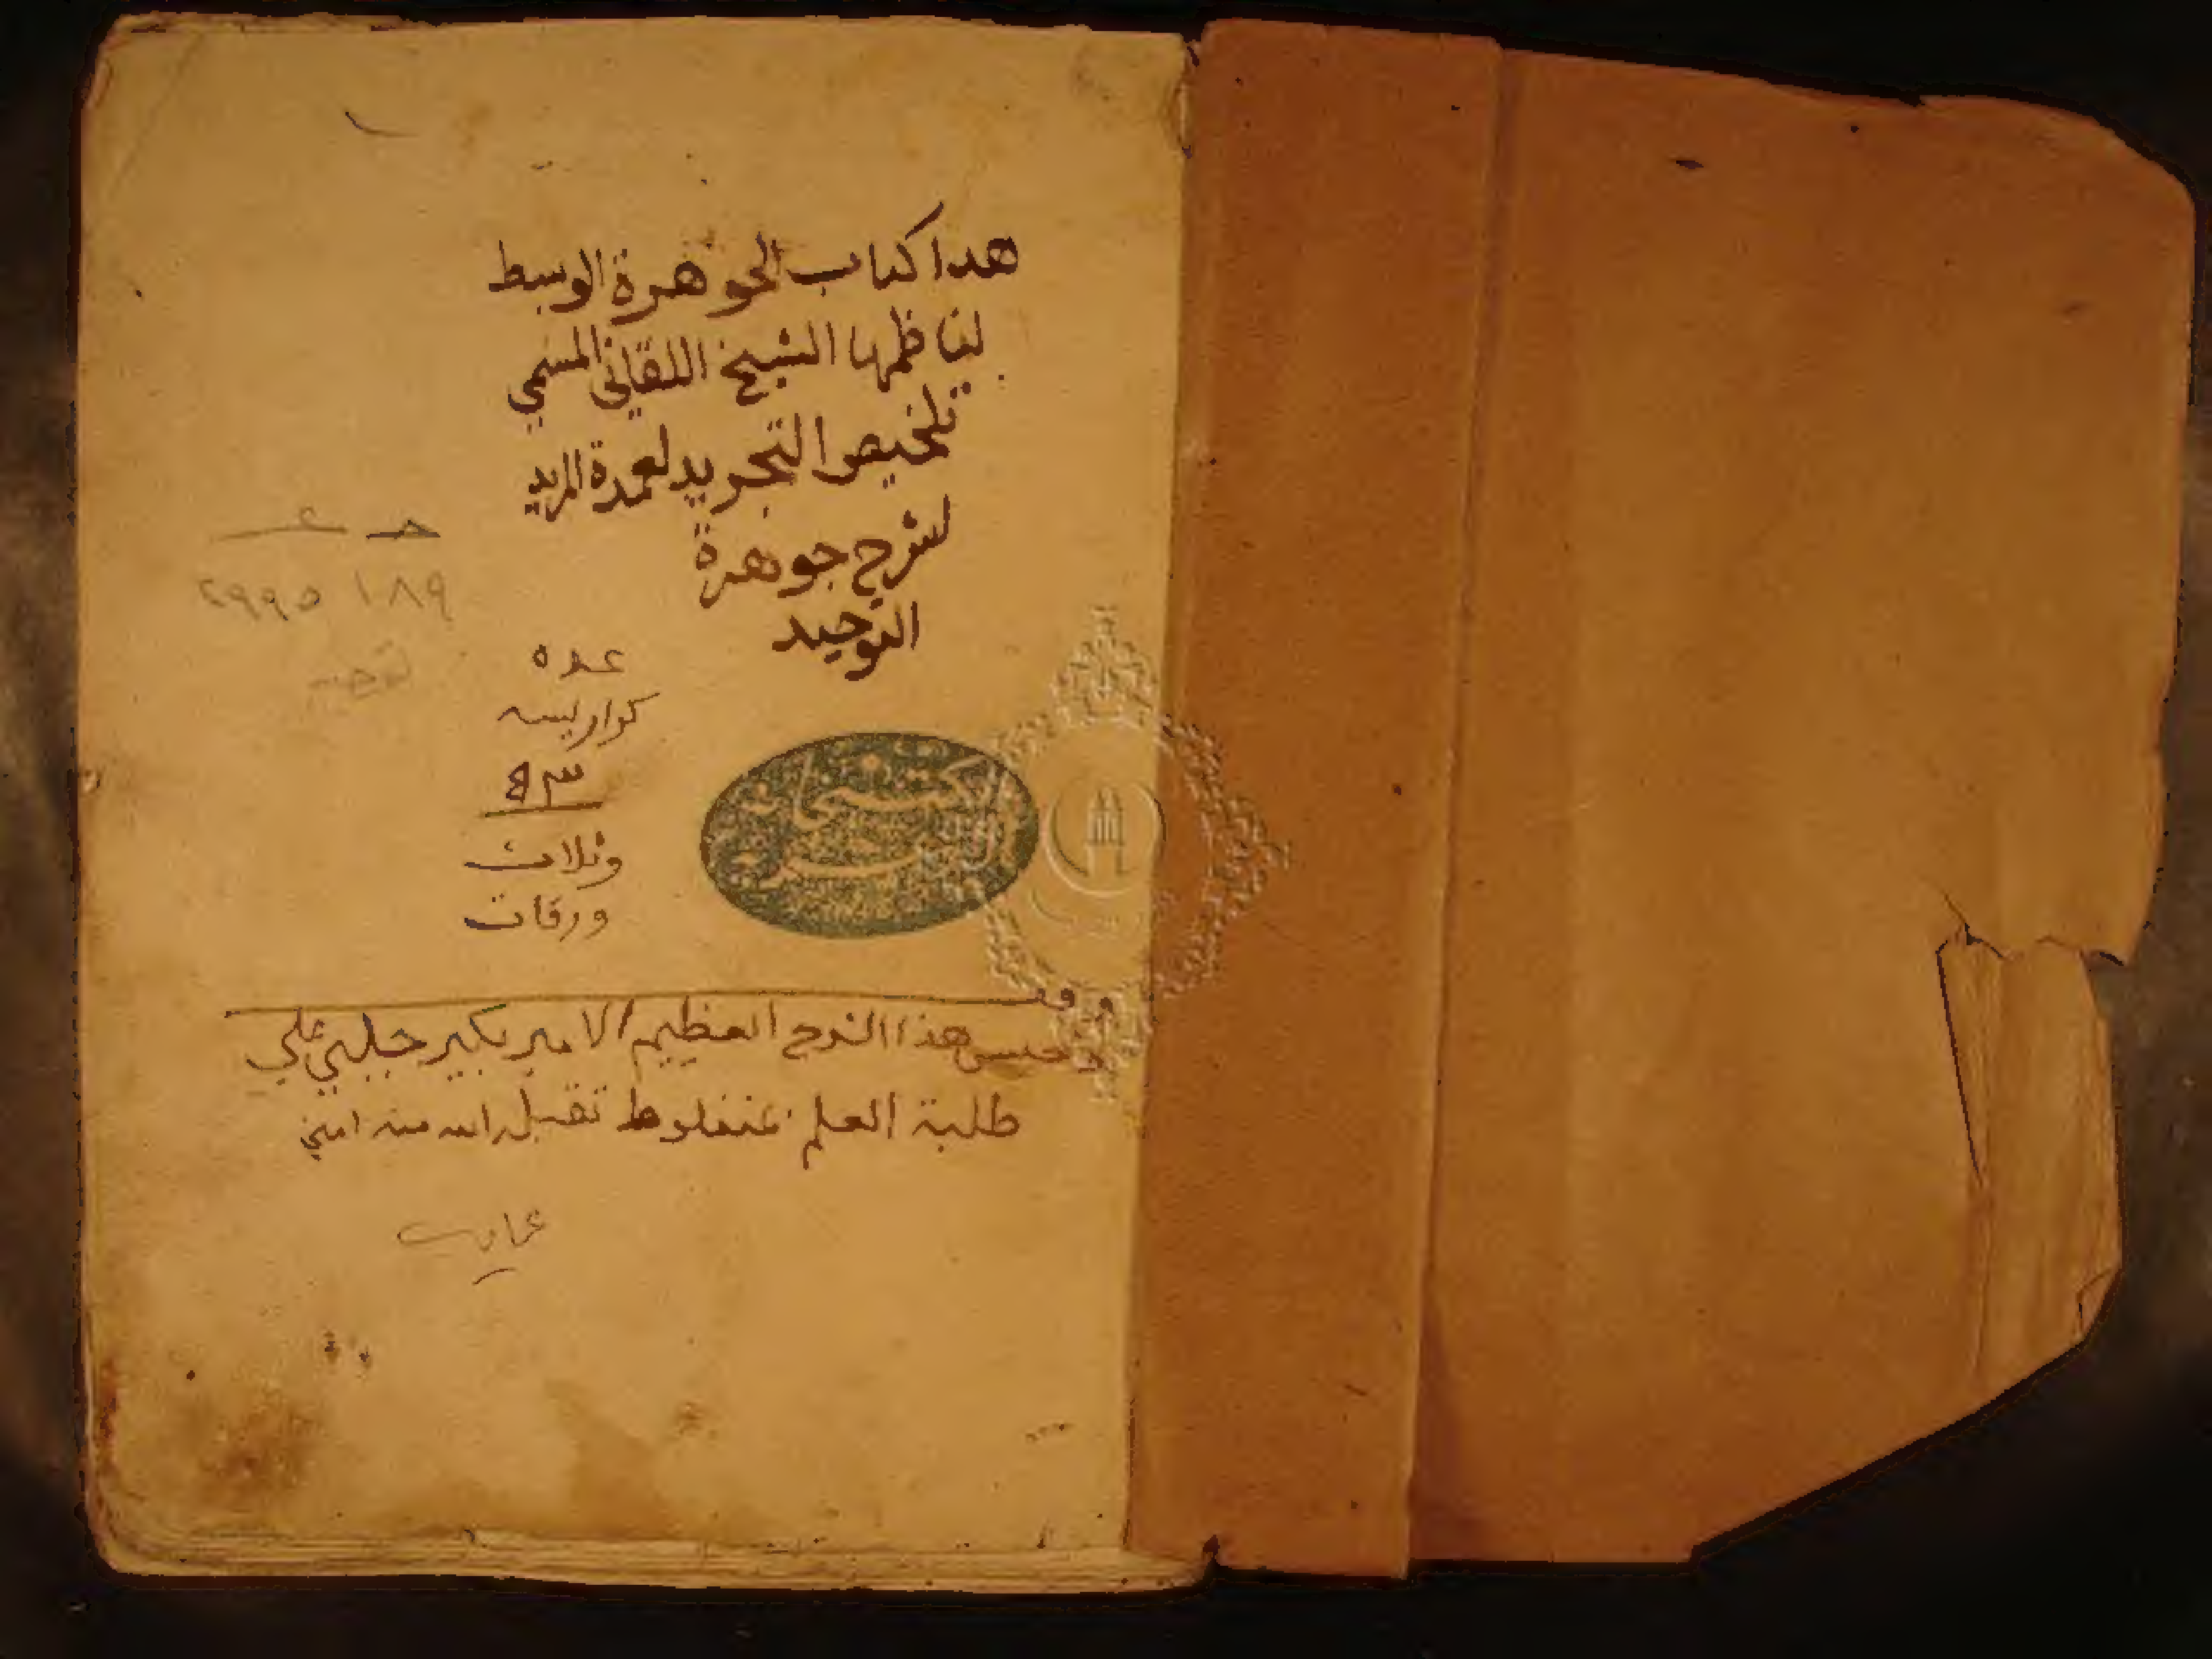 هدا كتاب الجوهرة الوسط
لناظمها الشيخ اللقاني المسمي
تلخيص التجريد لعمدة المريد
لشرح جوهرة
التوحيد
خـ عـ
١٨٩ ٢٩٩٥
توحيد
عده
كواريس
٤٣
وثلاث
ورقات
الكتبخانة
وقف
وحبس هذا الشرح العظيم الامير بكير جلبي علي
طلبة العلم بمنفلوط تقبل الله منه امين